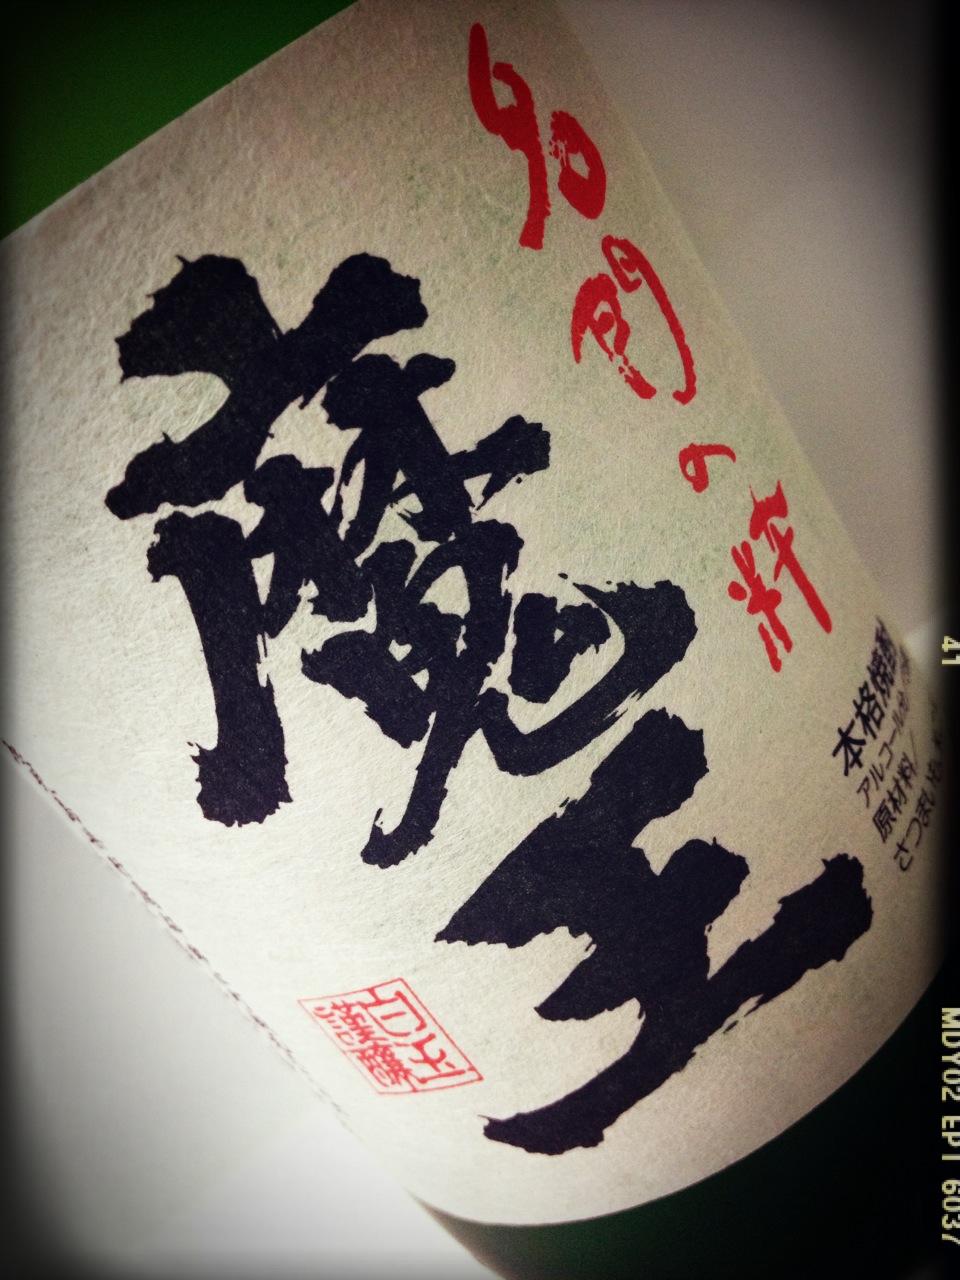 名門の粋
魔王
本格焼酎
アルコール分
原材料/
さつまいも
41
MDY02 EPT 6037